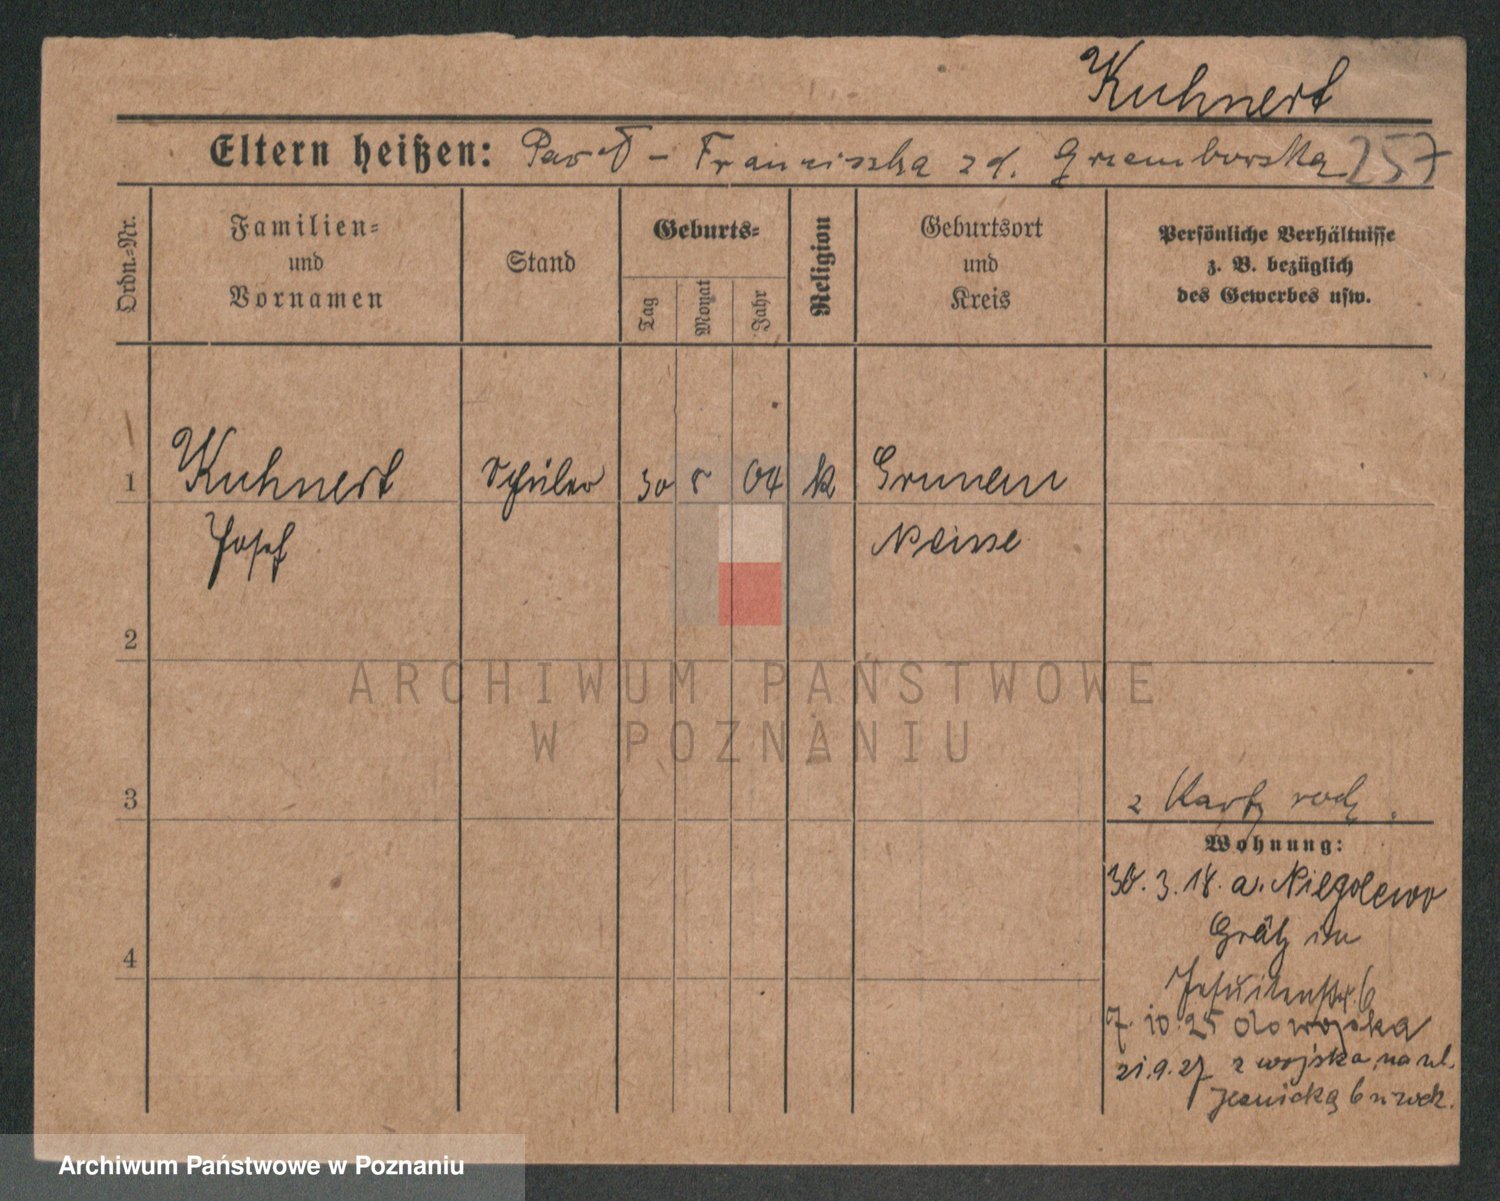 Kuhnert
Eltern heißen: Paweł - Franciszka zd. Grzemborska 257
Ordn.-Nr.
Familien-
und
Vornamen
Stand
Geburts-
Tag
Monat
Jahr
Religion
Geburtsort
und
Kreis
Persönliche Verhältnisse
z. B. bezüglich
des Gewerbes usw.
1 Kuhnert Schüler 30 5 04 k Grunau
Josef Neisse
2
3
z Karty rodz.
Wohnung:
30. 3. 18. a. Niegolewo
Grätz in
Jesuitenstr. 6
4
7. 10. 25 do wojska
21. 9. 27 z wojska na ul.
Jezuicką 6 u rodz.
ARCHIWUM PAŃSTWOWE
W POZNANIU
Archiwum Państwowe w Poznaniu